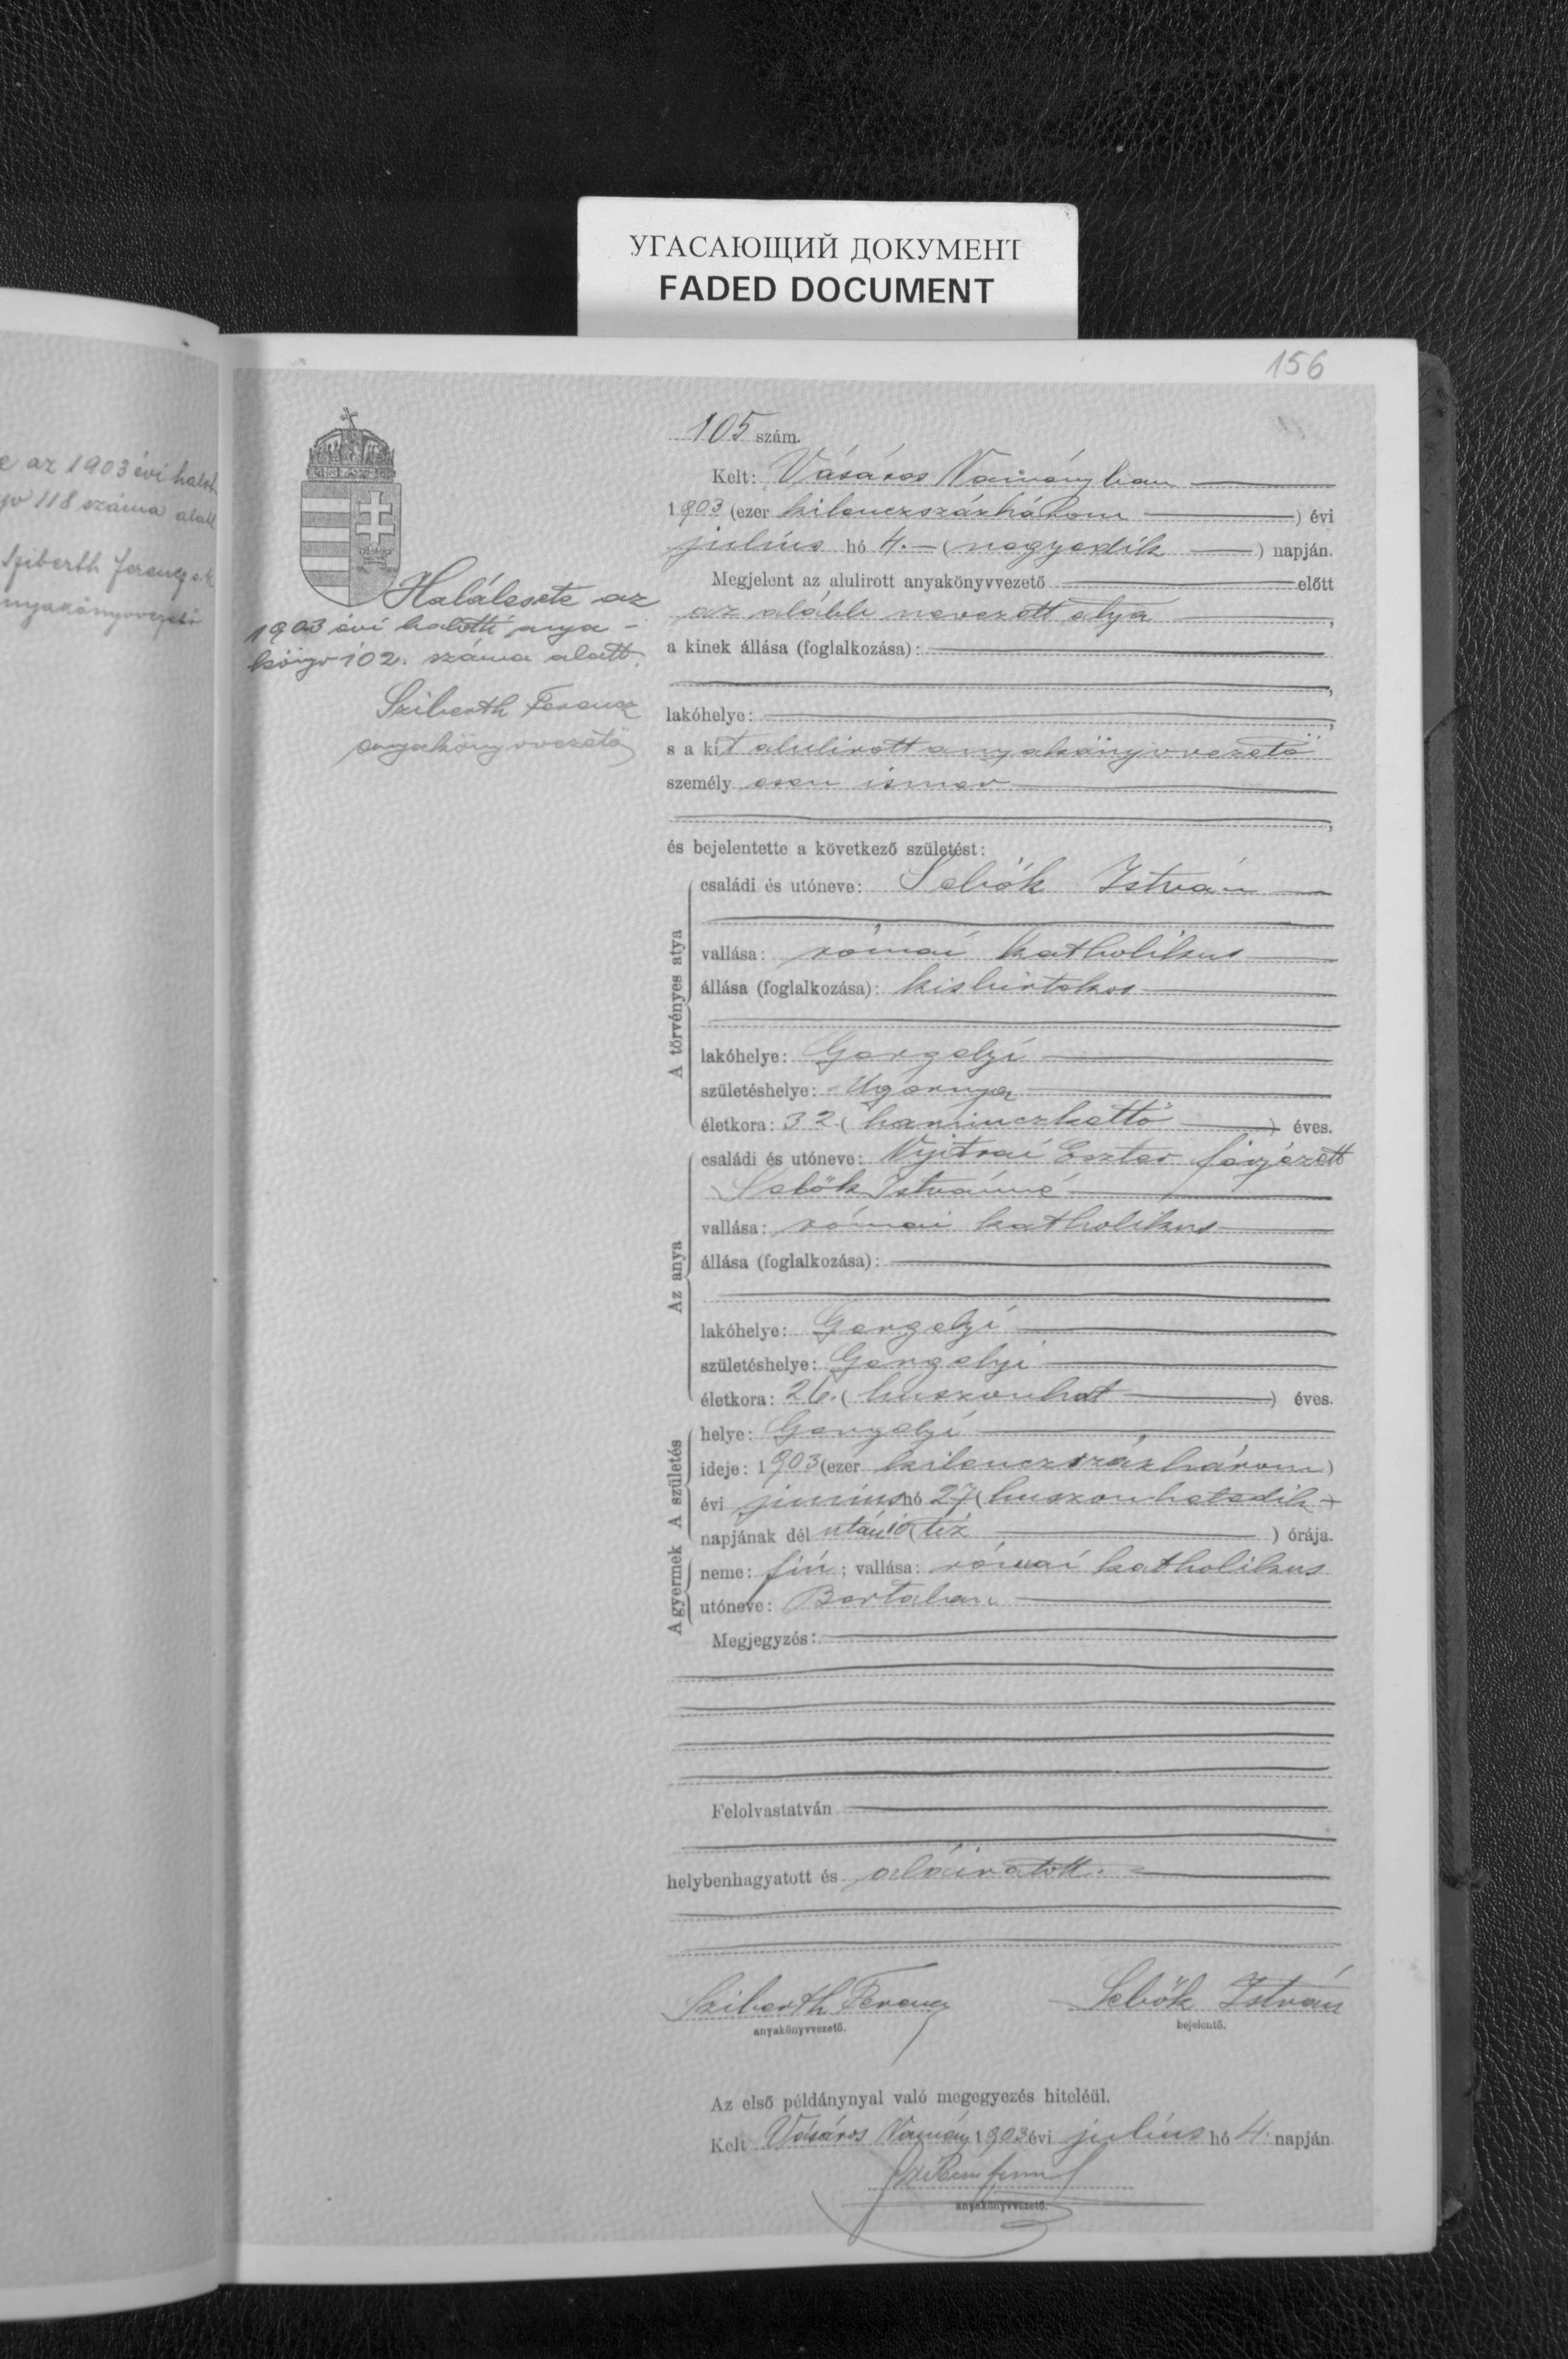 УГАСАЮЩИЙ ДОКУМЕНТ
FADED DOCUMENT
156
e az 1903 évi halot
yv 118 száma alatt
Sziberth Ferencz s.k.
nyakönyvvezető
Halálesete az
1903 évi halotti anya-
könyv 102. száma alatt.
Sziberth Ferencz
anyakönyvvezető
105 szám.
Kelt: Vásáros Naményban
1903 (ezer kilenczszázhárom) évi
július hó 4. (negyedik) napján.
Megjelent az alulirott anyakönyvvezető előtt
az alább nevezett atya,
a kinek állása (foglalkozása):
lakóhelye:
s a kit alulirott anyakönyvvezető
személyesen ismer
és bejelentette a következő születést:
A törvényes atya
családi és utóneve: Sebők István
vallása: római katholikus
állása (foglalkozása): kisbirtokos
lakóhelye: Gergelyi
születéshelye: Ugornya
életkora: 32 (harminczkettő) éves.
Az anya
családi és utóneve: Nyitrai Eszter férjezett
Sebők Istvánné
vallása: római katholikus
állása (foglalkozása):
lakóhelye: Gergelyi
születéshelye: Gergelyi
életkora: 26. (huszonhat) éves.
A születés
helye: Gergelyi
ideje: 1903 (ezer kilenczszázhárom)
évi június hó 27 (huszonhetedik)
napjának dél után 10 (tíz) órája.
A gyermek
neme: fiú; vallása: római katholikus
utóneve: Bertalan
Megjegyzés:
Felolvastatván
helybenhagyatott és aláiratott.
Sziberth Ferencz
Sebők István
anyakönyvvezető.
bejelentő.
Az első példánynyal való megegyezés hiteléül.
Kelt Vásáros Namény 1903 évi július hó 4. napján
anyakönyvvezető.